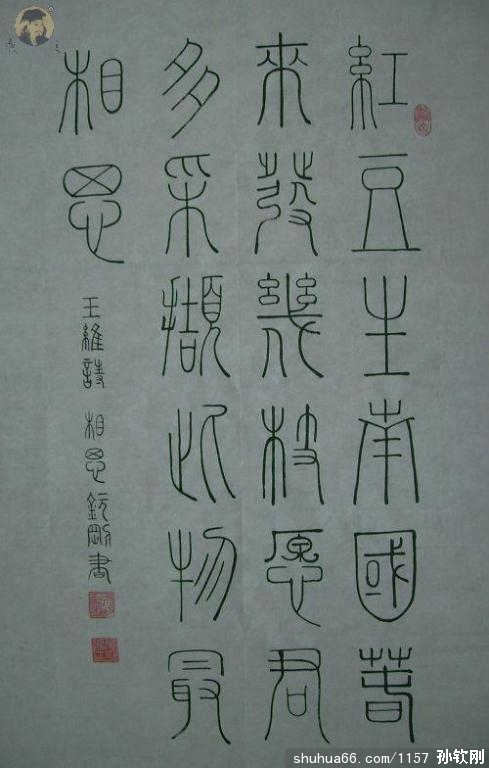 紅豆生南國春
來發幾枝愿君
多采擷此物最
相思
王維詩 相思 欽剛書
shuhua66.com/1157 孙钦刚